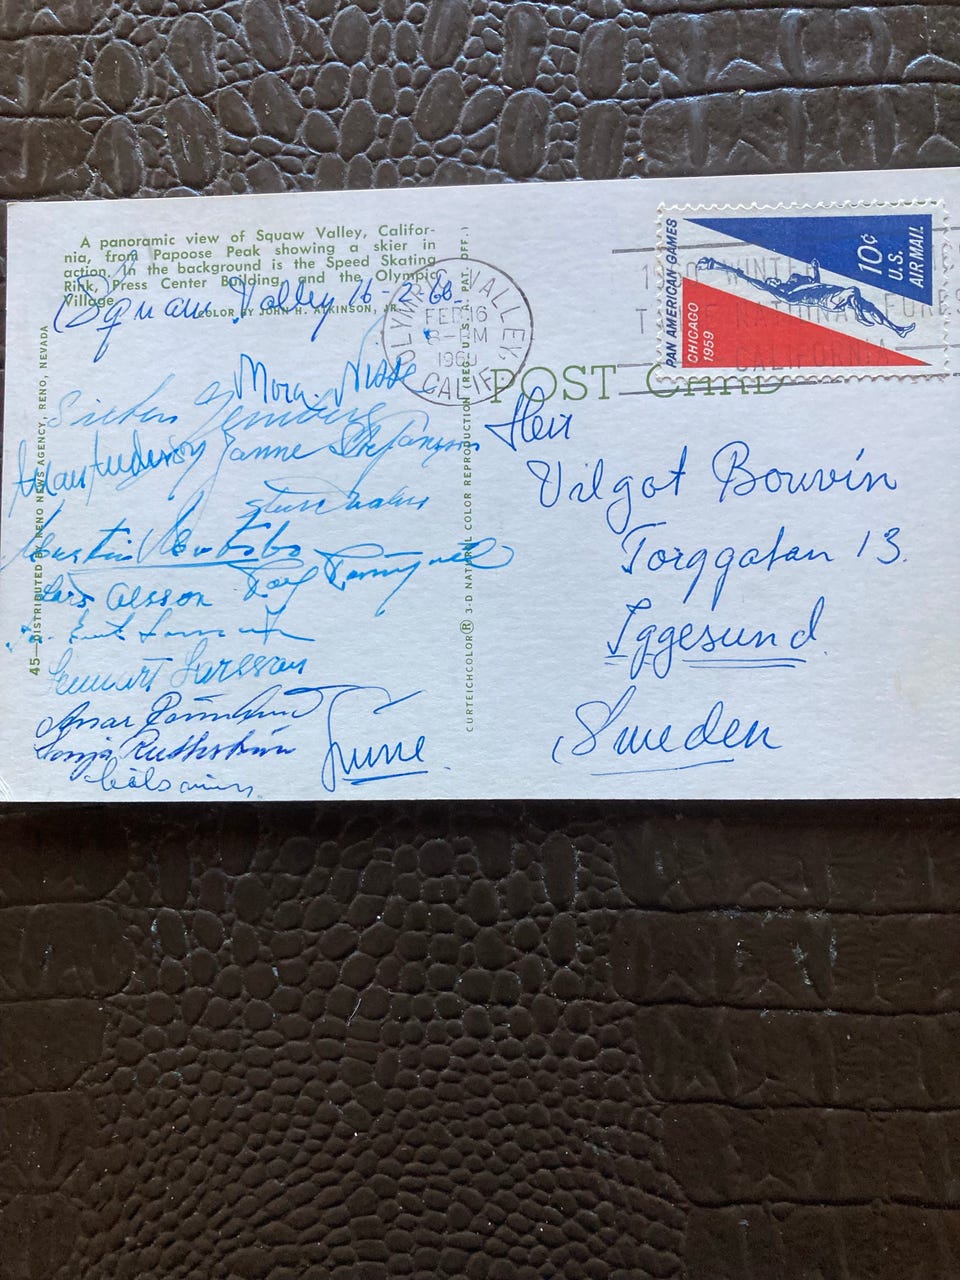 A panoramic view of Squaw Valley, Califor-
nia, from Papoose Peak showing a skier in
action. In the background is the Speed Skating
Rink, Press Center Building and the Olympic
Village.
COLOR BY JOHN H. ATKINSON, JR.
Squaw Valley 16-2-60.
Mora Nisse
Sixten Jernberg
Janne Stefansson
Sture
Martin
Lars Olsson Rolf Rämgård
Lennart Larsson
Sonja Ruthström
Hälsningar.
Rune.
45—DISTRIBUTED BY RENO NEWS AGENCY, RENO, NEVADA
CURTEICHCOLOR® 3-D NATURAL COLOR REPRODUCTION (REG. U.S. PAT. OFF.)
OLYMPIC VALLEY,
FEB 16
PM
1960
CALIF.
1960 WINTER
CALIFORNIA
PAN AMERICAN GAMES
CHICAGO
1959
10¢
U.S.
AIR MAIL
POST CARD
Herr
Vilgot Bouvin
Torggatan 13.
Iggesund.
Sweden